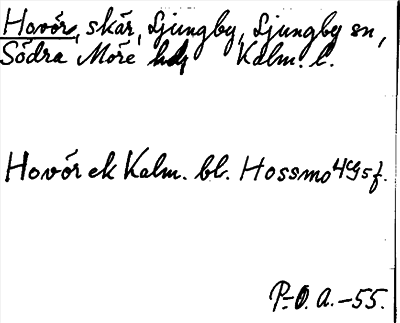 Hovör, skär, Ljungby, Ljungby sn,
Södra Möre hd, Kalm. l.
Hovör ek Kalm. bl. Hossmo 4G5f.
P-O. A. -55.